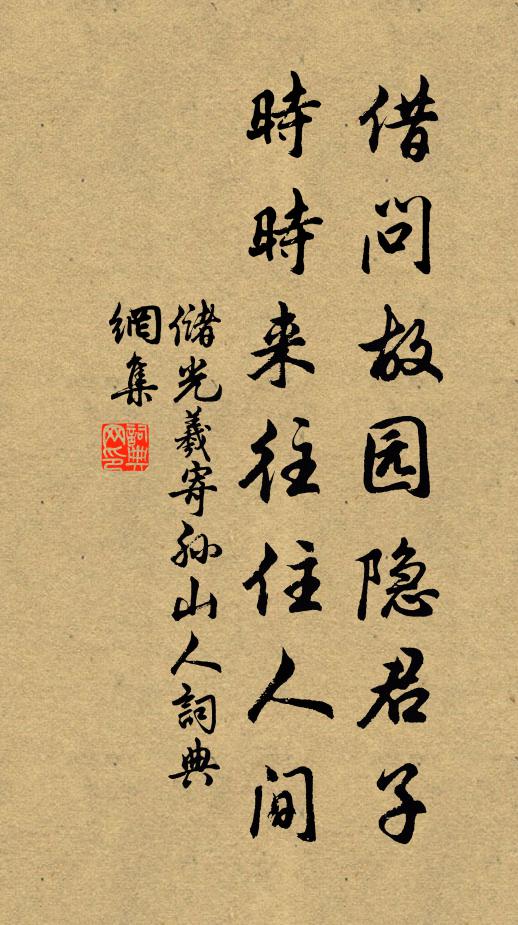 借问故园隐君子
時時来往住人间
儲光羲寄孙山人詞典
網集
詞典网印